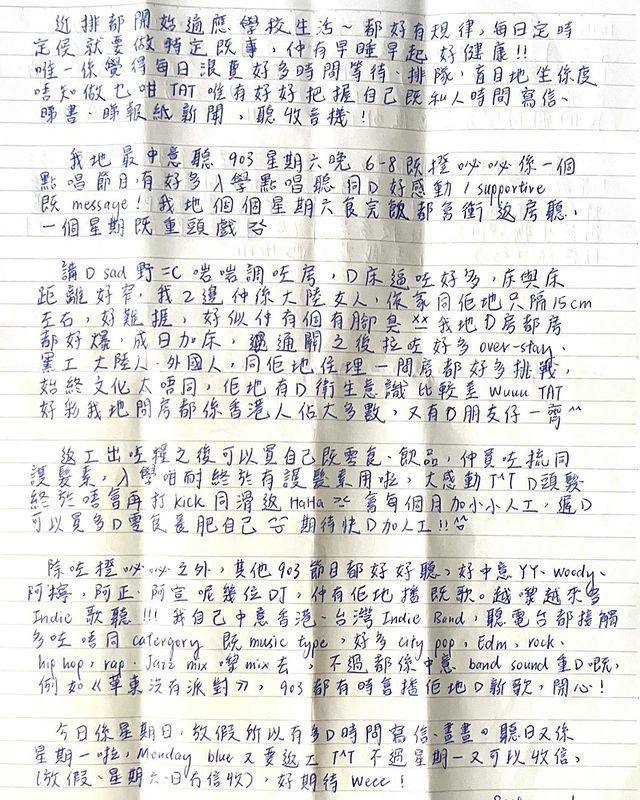 近排都開始適應學校生活~都好有規律,每日定時
定侯就要做特定既事,仲有早睡早起好健康!!
唯一係覺得每日浪費好多時間等待、排隊,盲目地坐係度
唔知做乜咁 TAT 唯有好好把握自己既私人時間寫信、
睇書、睇報紙新聞,聽收音機!
我地最中意聽 903 星期六晚 6-8 既橙必必係一個
點唱節目,有好多入學點唱聽同D好感動/supportive
既 message! 我地個個星期六食完飯都會衝返房聽,
一個星期既重頭戲
講D sad 野 =C 啱啱調咗房,D床逼咗好多,床與床
距離好窄,我2邊仲係大陸女人,係家同佢地只隔15cm
左右,好難捱,好似仲有個有腳臭 xx 我地D房都房
都好爆,成日加床,通關之後拉咗好多 over-stay、
黑工大陸人、外國人,同佢地住埋一間房都好多挑戰,
始終文化太唔同,佢地有D衛生意識比較差 Wuuu TAT
好彩我地間房都係香港人佔大多數,又有D朋友仔一齊^^
返工出咗糧之後可以買自己既零食、飲品,仲買咗梳同
護髮素,入學咁耐終於有護髮素用啦,大感動 T^T D頭髮
終於唔會再打kick同滑返 HaHa 會每個月加小小人工,遲D
可以買多D零食養肥自己 期待快D加人工!!^^
除咗橙必必之外,其他903節目都好好聽,好中意YY、Woody、
阿檸,阿正、阿宣呢幾位DJ,仲有佢地播既歌。越嚟越來多
Indie 歌聽!!! 我自己中意香港、台灣 Indie Band,聽電台都接觸
多咗唔同 catergory 既 music type,好多 city pop, Edm, rock、
hip hop, rap、Jazz mix 嚟 mix 去,不過都係中意 band sound 重D嘅,
例如《華東沒有派對》,903都有時會播佢地D新歌,開心!
今日係星期日,放假所以有多D時間寫信、畫畫。聽日又係
星期一啦, Monday blue 又要返工 T^T 不過星期一又可以收信,
(放假、星期六、日冇信收),好期待 Weee!